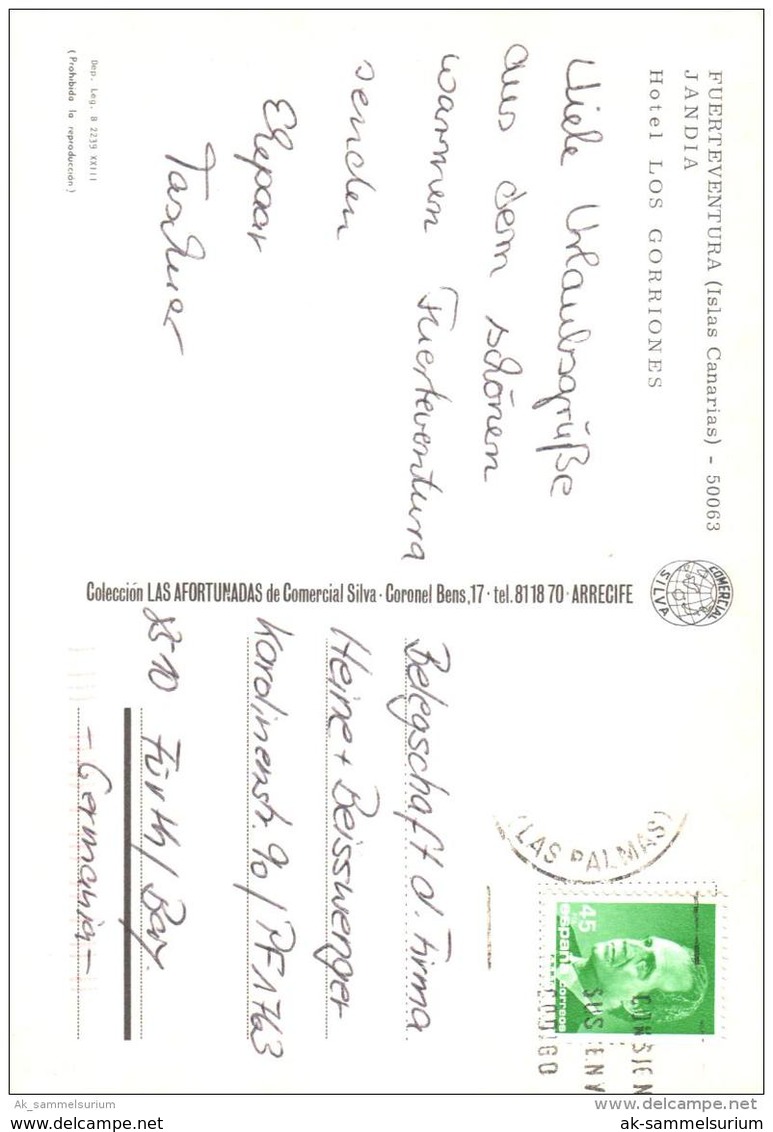 FUERTEVENTURA (Islas Canarias) - 50063
JANDIA
Hotel LOS GORRIONES
Viele Urlaubsgrüße
aus dem schönen
warmen Fuerteventura
senden
Ehepaar
Taschner
Dep. Leg. B 2239 XXIII
(Prohibida la reproducción)
COMERCIAL
SILVA
Colección LAS AFORTUNADAS de Comercial Silva · Coronel Bens, 17 · tel. 81 18 70 · ARRECIFE
(LAS PALMAS)
45
españa
correos
Belegschaft d. Firma
Heine + Beisswenger
Karolinenstr. 90 / PF 1763
8510 Fürth / Bay.
- Germania -
Ak_sammelsurium
delcampe.net
ak-sammelsurium